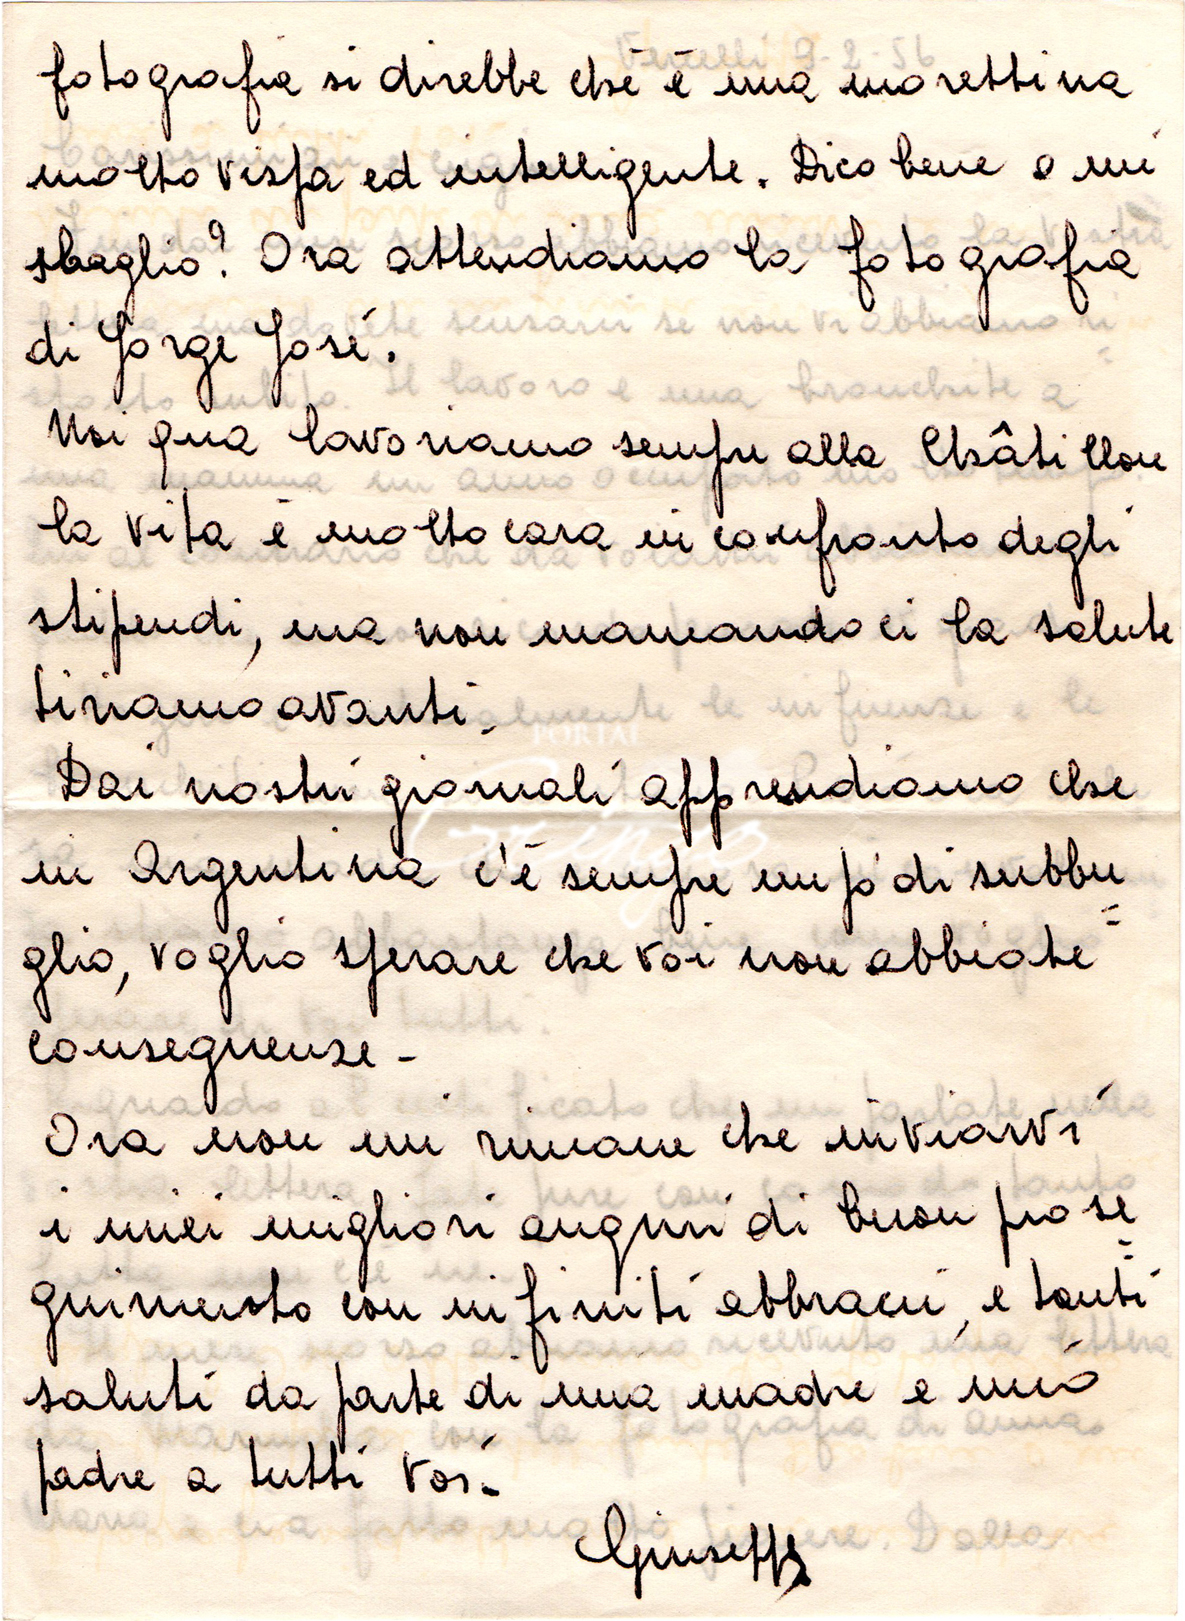 fotografia si direbbe che è una morettina
molto vispa ed intelligente. Dico bene o mi
sbaglio? Ora attendiamo la fotografia
di Jorge José.
Noi qua lavoriamo sempre alla Châtillon
la vita è molto cara in confronto degli
stipendi, ma non mancandoci la salute
tiriamo avanti.
Dai nostri giornali apprendiamo che
in Argentina c'è sempre un pó di subbu=
glio, voglio sperare che voi non abbiate
conseguenze -
Ora non mi rimane che inviarvi
i miei migliori auguri di buon prose=
guimento con infiniti abbracci, e tanti
saluti da parte di mia madre e mio
padre a tutti voi.
Giuseppe
Vercelli 9-2-56
PORTAL